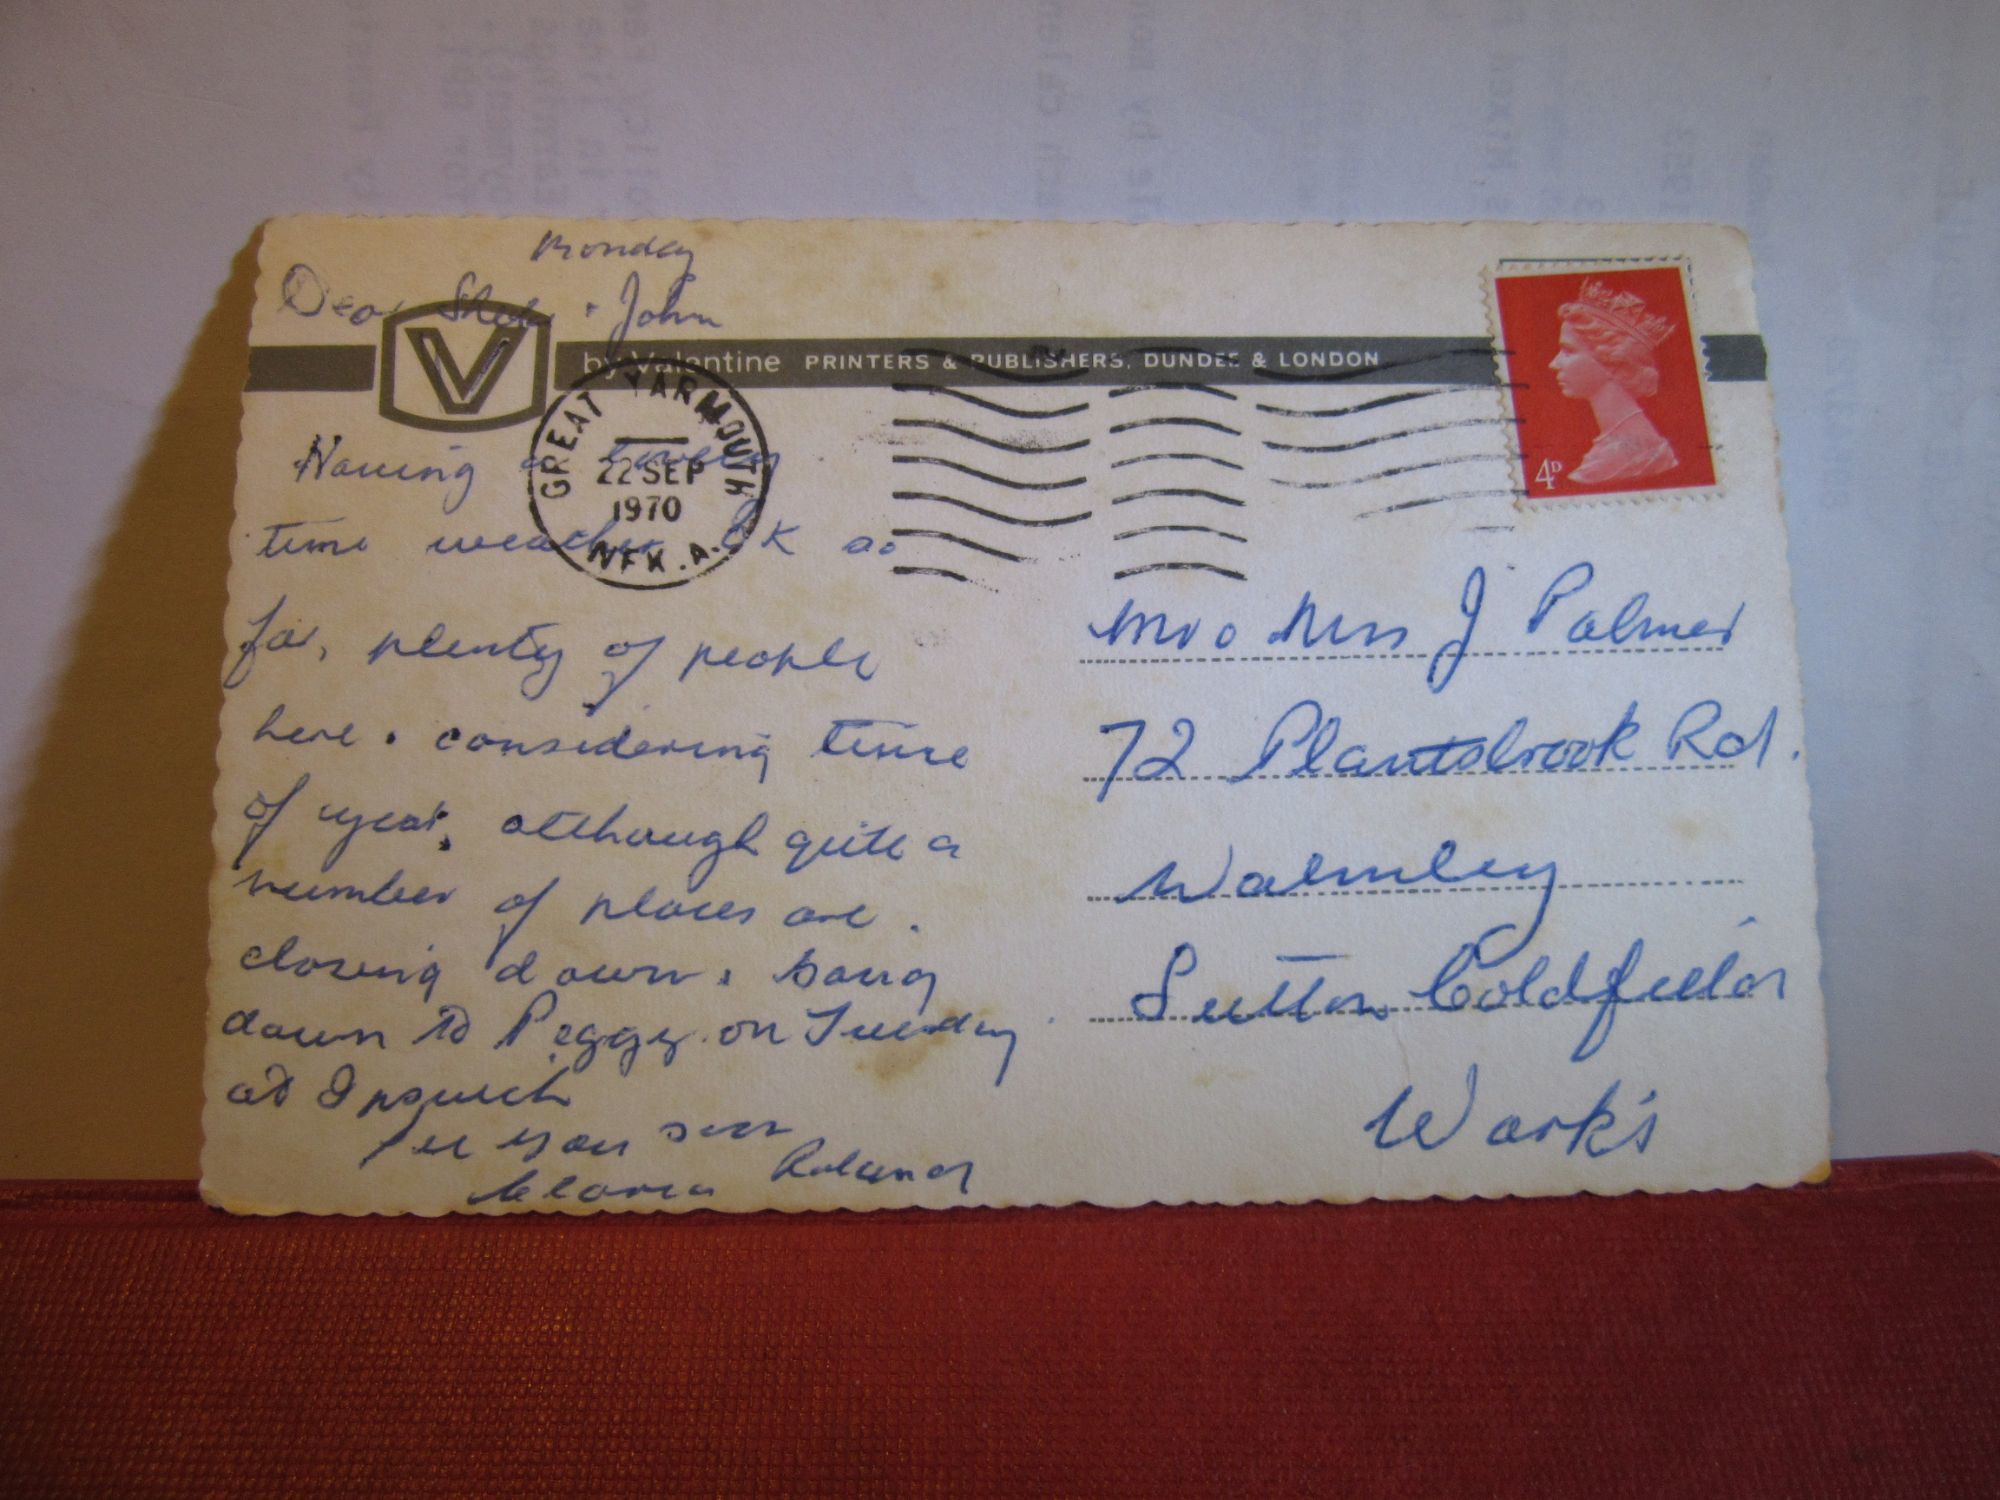 Monday
Dear Sheila & John
by Valentine PRINTERS & PUBLISHERS, DUNDEE & LONDON
GREAT YARMOUTH
22 SEP
1970
NFK . A.
4D
Having a lovely
time weather OK so
far, plenty of people
here. considering time
of year, although quite a
number of places are
closing down. Going
down to Peggy on Tuesday
at Ipswich
See you soon
Gloria Roland
Mr & Mrs J Palmer
72 Plantsbrook Rd.
Walmley
Sutton Coldfield
Warks
1953